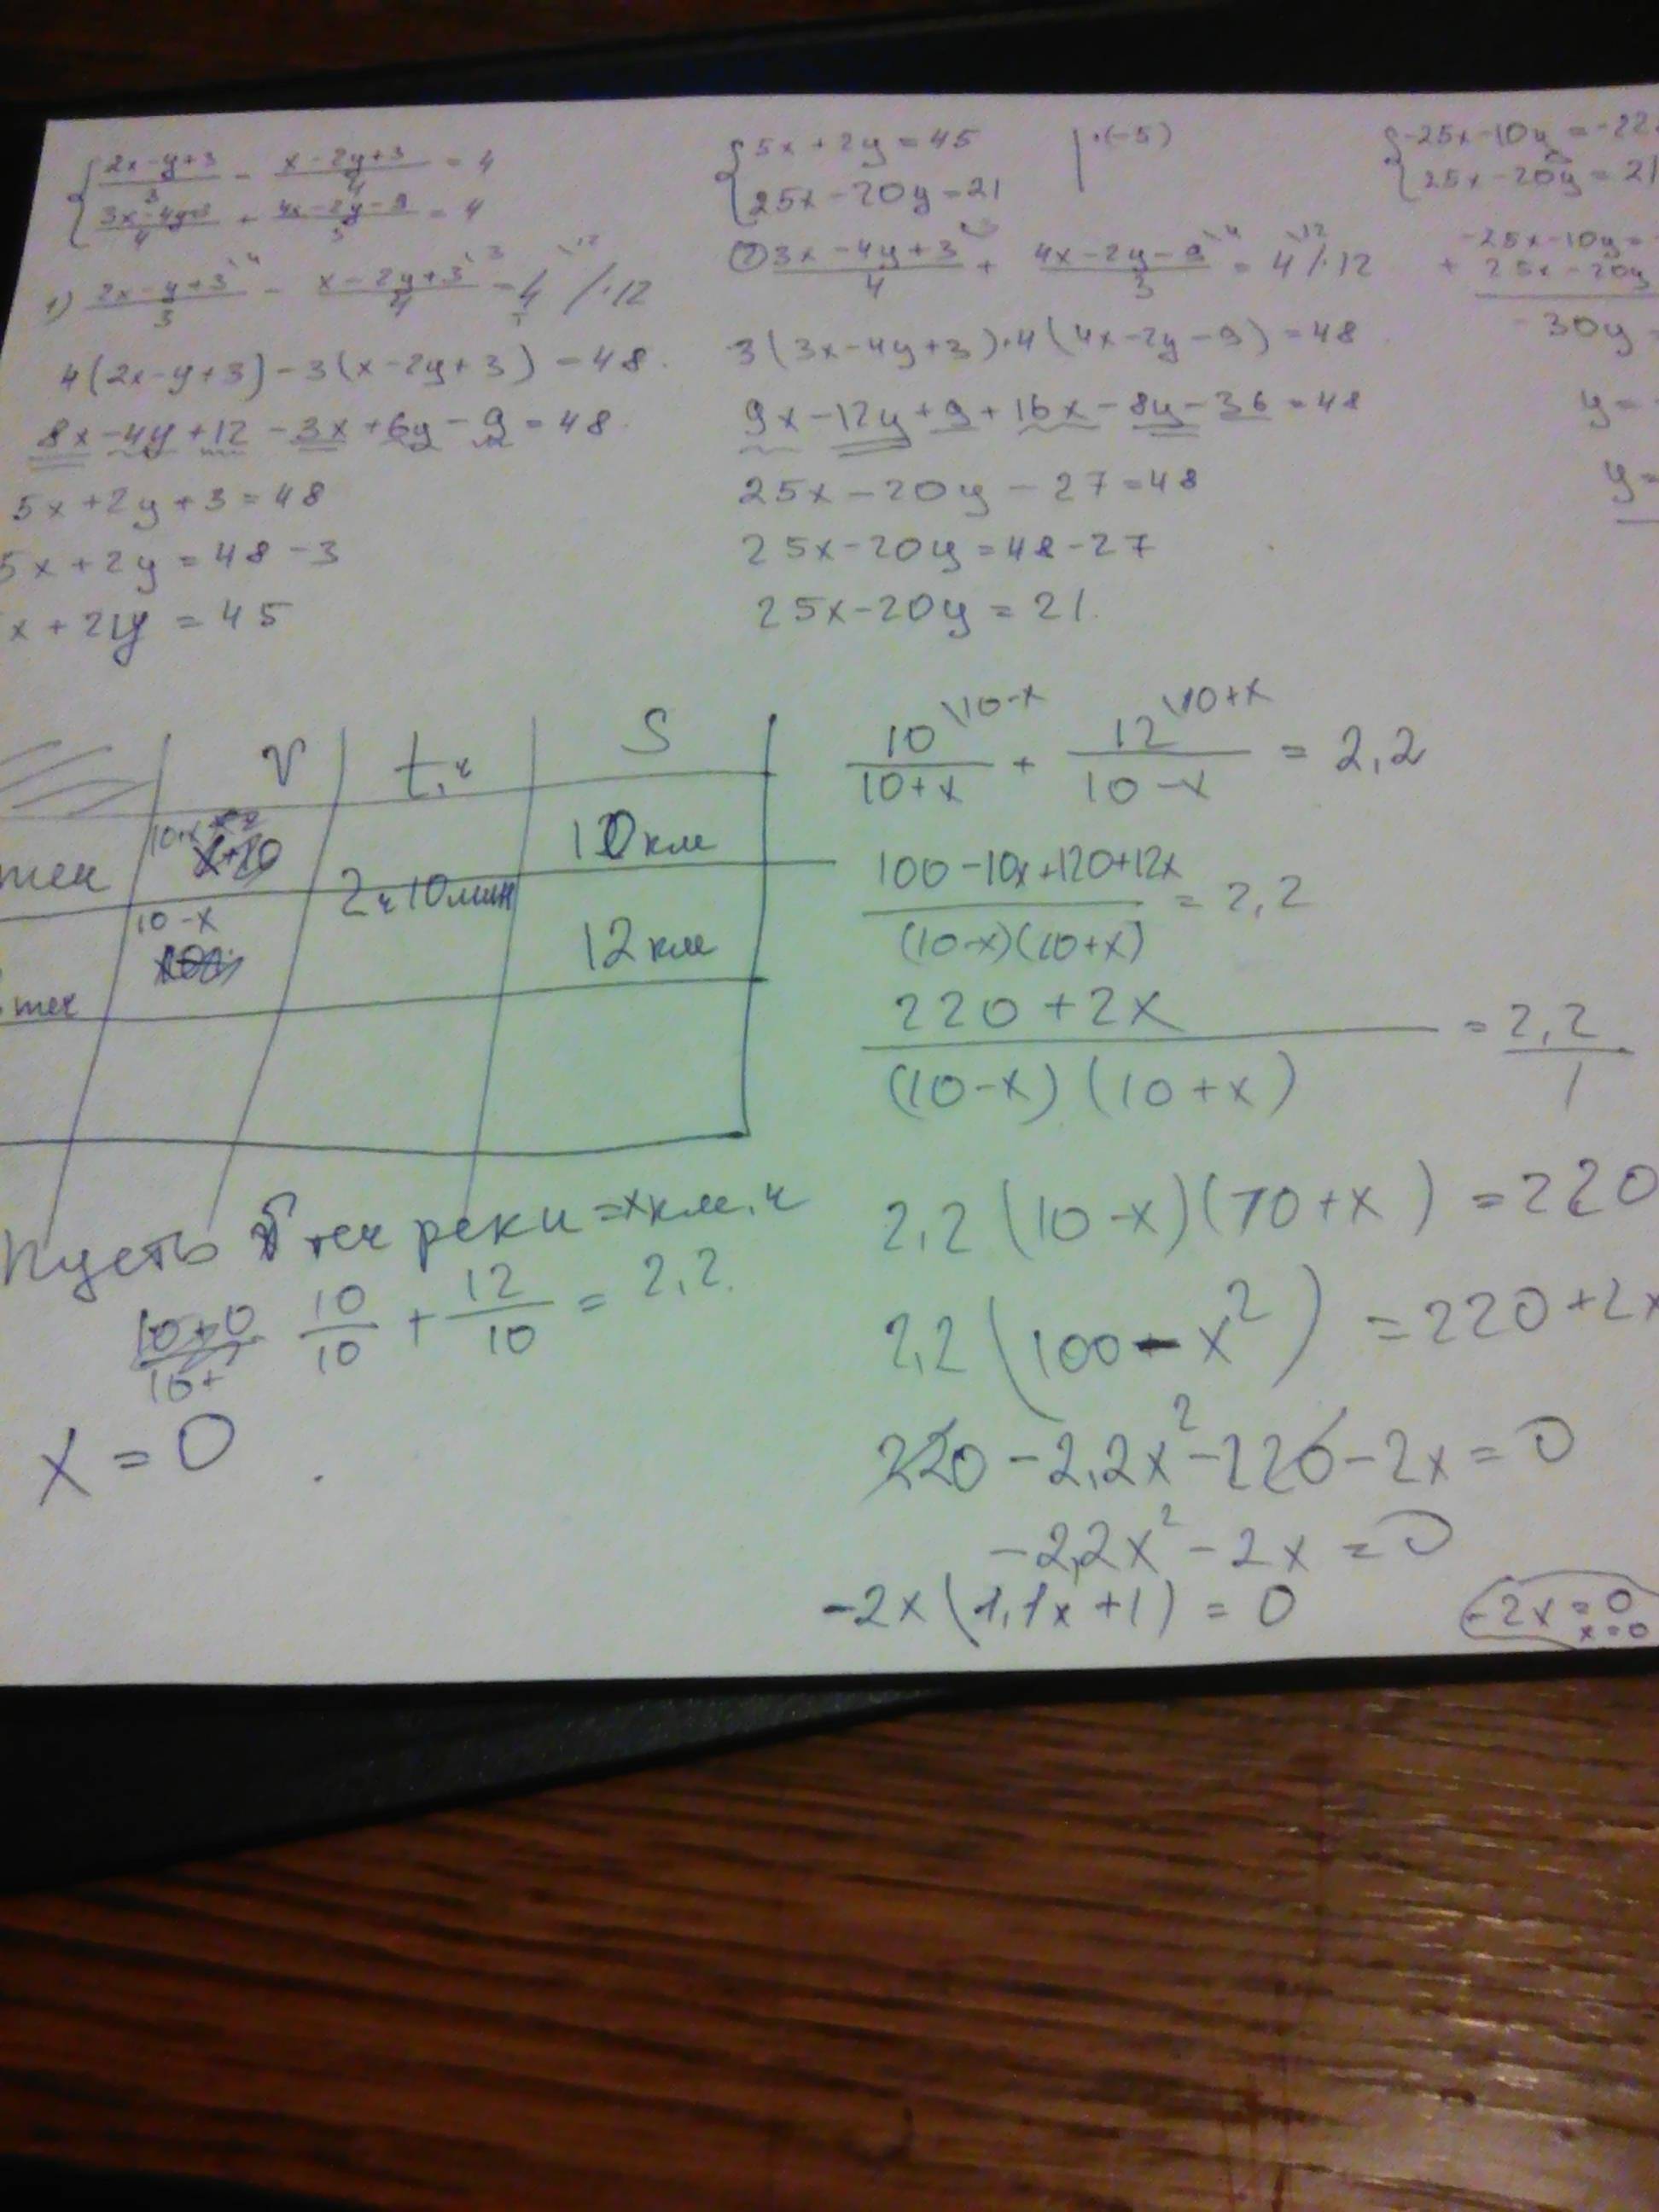 { (2x-y+3)/3 - (x-2y+3)/4 = 4
(3x-4y+3)/4 + (4x-2y-9)/3 = 4
1) (2x-y+3\4)/3 - (x-2y+3\3)/4 = 4\12/1 /·12
4(2x-y+3)-3(x-2y+3)=48.
8x-4y+12-3x+6y-9=48.
5x+2y+3=48
5x+2y=48-3
x+2y=45
{ 5x+2y=45 |·(-5)
25x-20y=21
2) (3x-4y+3\3)/4 + (4x-2y-9\4)/3 = 4\12 /·12
3(3x-4y+3)+4(4x-2y-9)=48.
9x-12y+9+16x-8y-36=48
25x-20y-27=48
25x-20y=48-27
25x-20y=21.
{ -25x-10y=-22
25x-20y=21
-25x-10y=
+ 25x-20y
-30y=
y=-
y=
V t,ч S
тек 10+x 10км
2ч10мин
10-x 12км
теч
Пусть V теч реки=x км.ч
10/10 + 12/10 = 2,2.
x=0
10\10-x/(10+x) + 12\10+x/(10-x) = 2,2
(100-10x+120+12x)/((10-x)(10+x)) = 2,2
(220+2x)/((10-x)(10+x)) = 2,2/1
2,2(10-x)(10+x)=220
2,2(100-x²)=220+2x
220-2,2x²-220-2x=0
-2,2x²-2x=0
-2x(1,1x+1)=0
-2x=0
x=0